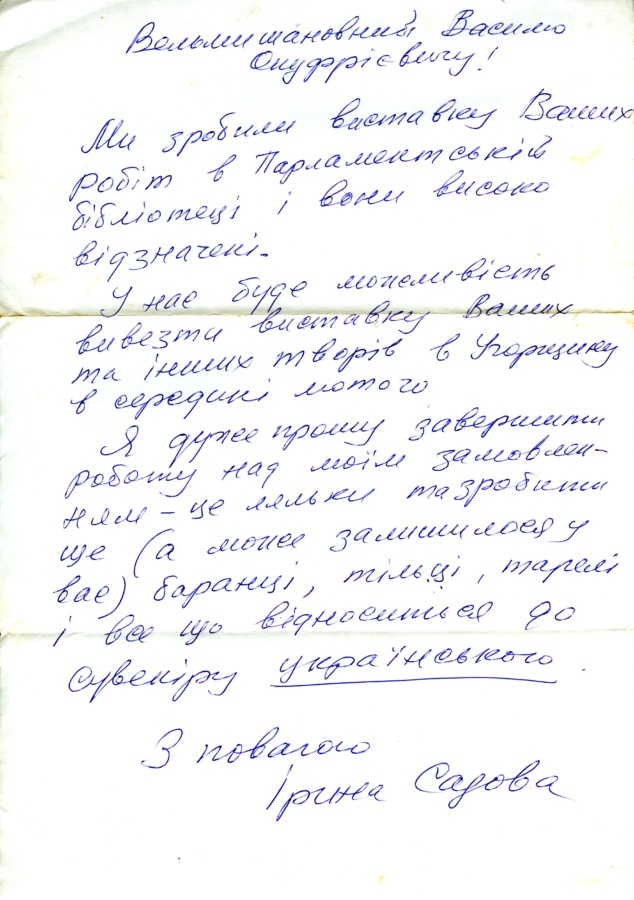 Вельмишановний Василю
Онуфрієвичу!
Ми зробили виставку Ваших
робіт в Парламентській
бібліотеці і вони високо
відзначені.
У нас буде можливість
вивезти виставку Ваших
та інших творів в Угорщину
в середині лютого
Я дуже прошу завершити
роботу над моїм замовлен-
ням – це ляльки та зробити
ще (а може залишилося у
вас) баранці, тільці, тарелі
і все що відноситься до
сувеніру українського.
З повагою
Ірина Садова